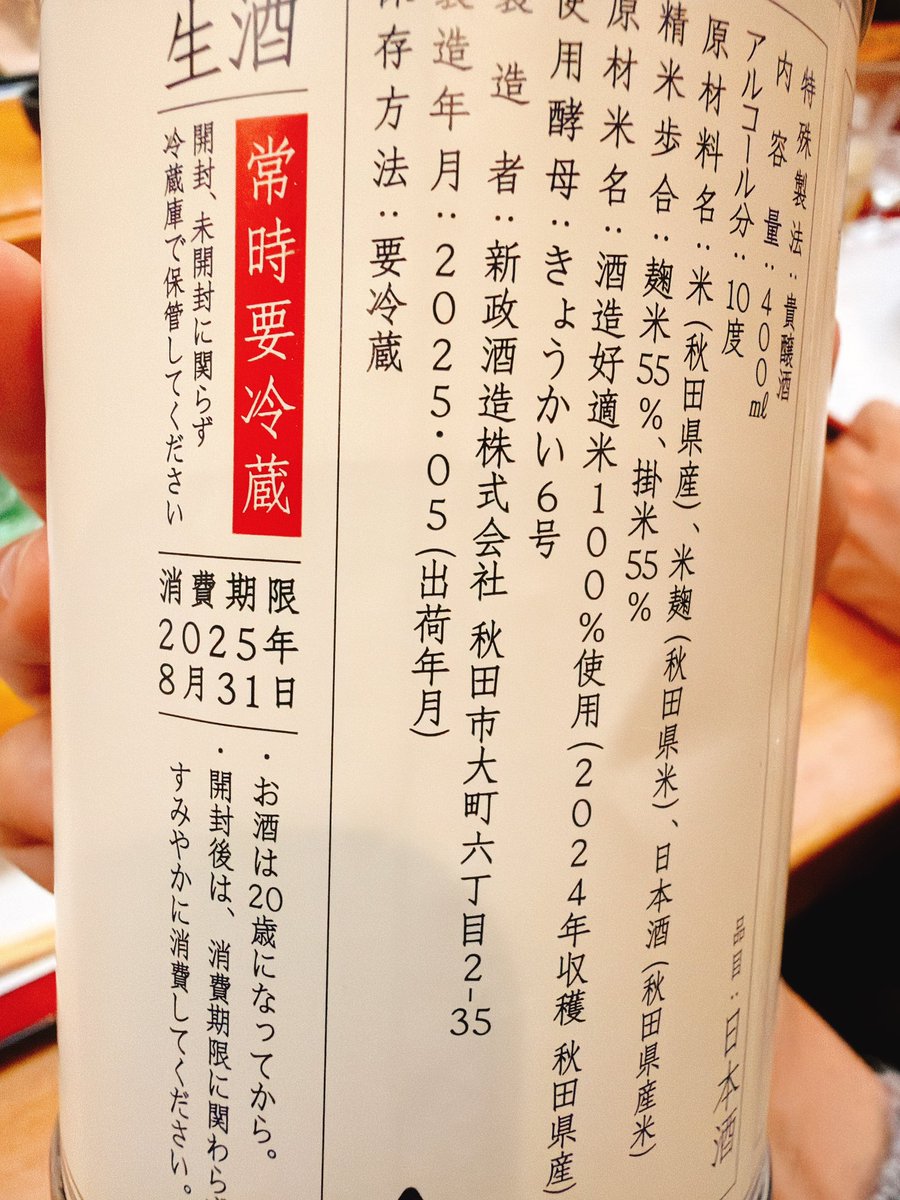 特殊製法：貴醸酒
内容量：400ml
アルコール分：10度
原材料名：米（秋田県産）、米麹（秋田県米）、日本酒（秋田県産米）
精米歩合：麹米55%、掛米55%
原材米名：酒造好適米100%使用（2024年収穫 秋田県産）
使用酵母：きょうかい6号
製造者：新政酒造株式会社 秋田市大町六丁目2-35
製造年月：2025.05（出荷年月）
保存方法：要冷蔵
品目：日本酒
生酒
常時要冷蔵
開封、未開封に関らず
冷蔵庫で保管してください
消費期限
2025年
8月31日
・お酒は20歳になってから。
・開封後は、消費期限に関わら
すみやかに消費してください。